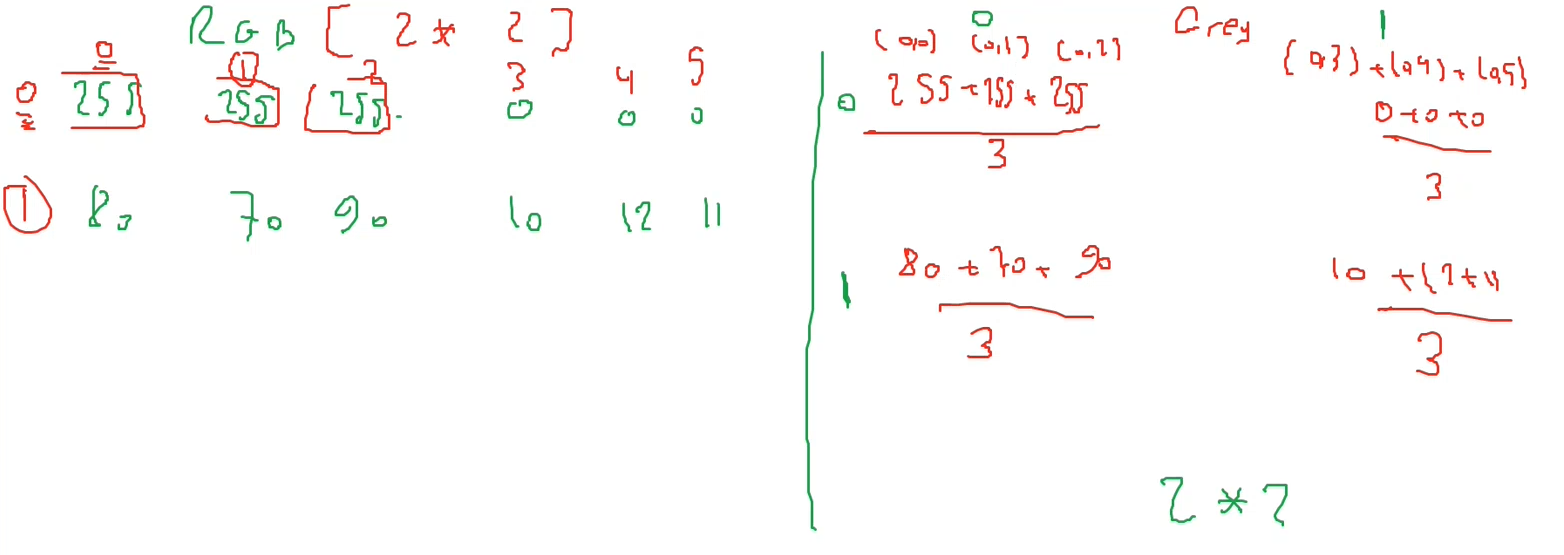 RGB [ 2 * 2 ]
0 1 2 3 4 5
0 255 255 255 0 0 0
1 80 70 90 10 12 11
Grey
0 1
(0,0) (0,1) (0,2)
0 255 + 255 + 255
3
(0,3) + (0,4) + (0,5)
0 + 0 + 0
3
1 80 + 70 + 90
3
10 + 12 + 11
3
2 * 2